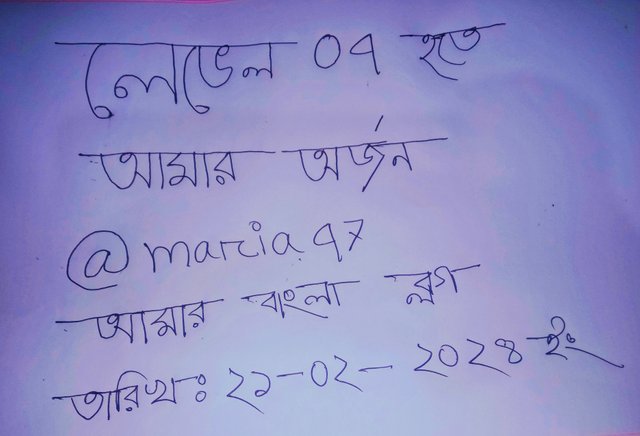 লেভেল ০৭ হতে
আমার অর্জন
@marcia97
আমার বাংলা ব্লগ
তারিখঃ ২১-০২-২০২৪ ইং